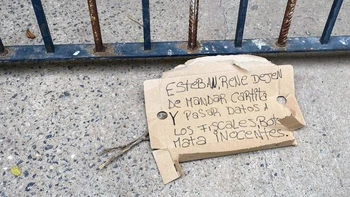 ESTEBAN, RENE DEJEN
DE MANDAR CARTITA
Y PASAR DATOS A
LOS FISCALES
MATA INOCENTES.